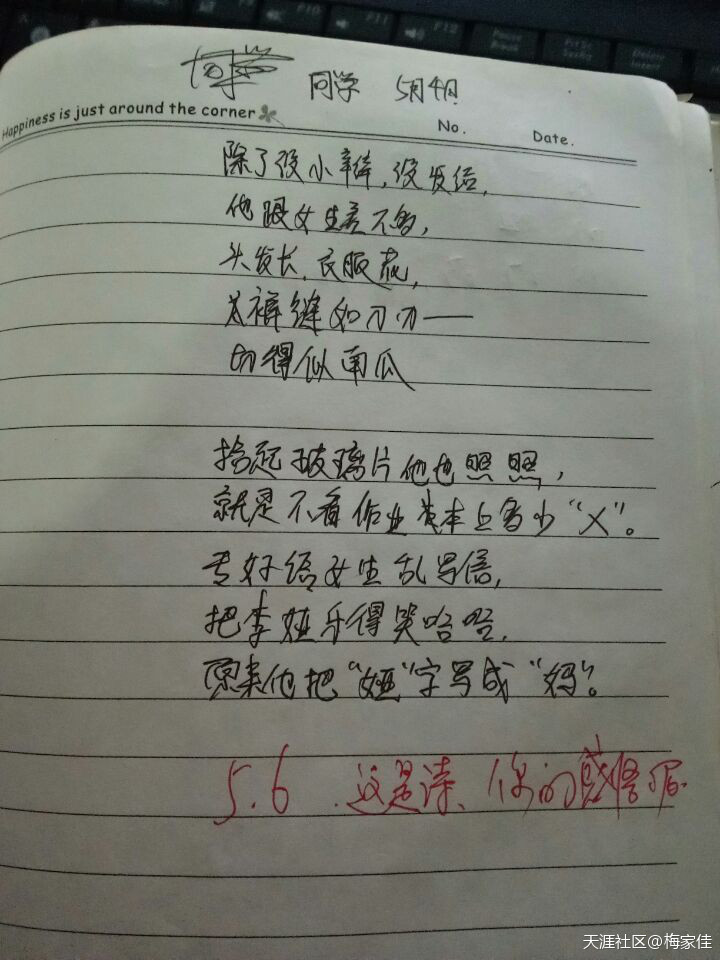 同学 5月4日
Happiness is just around the corner
No. Date.
除了没小辫,没发结,
他跟女生差不多,
头发长,衣服花,
裤缝如刀刃——
切得似南瓜
拾起玻璃片他也照照,
就是不看作业本上多少“X”。
专好给女生乱写信,
把李娅乐得哭哈哈,
原来他把“娅”字写成“妈”。
5.6 .这是诗、你的感悟呢.
天涯社区@梅家佳